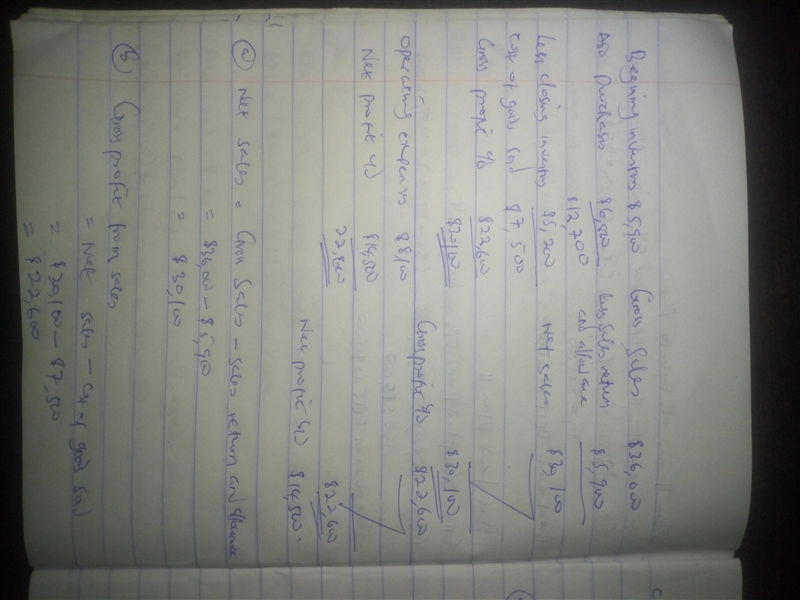 Begining inventory $5,900 Gross Sales $36,000
Add purchases $6,800 less sales return
$12,700 and allowance $5,900
Less closing inventory $5,200 Net sales $30,100
Cost of goods sold $7,500
Gross profit c/d $22,600
$30,100 $30,100
Gross profit b/d $22,600
Operating expenses $8,100
Net profit c/d $14,500
22,600 $22,600
Net profit b/d $14,500
a) Net sales = Gross Sales - sales return and allowance
= $36,000 - $5,900
= $30,100
b) Gross profit from sales
= Net sales - Cost of goods sold
= $30,100 - $7,500
= $22,600